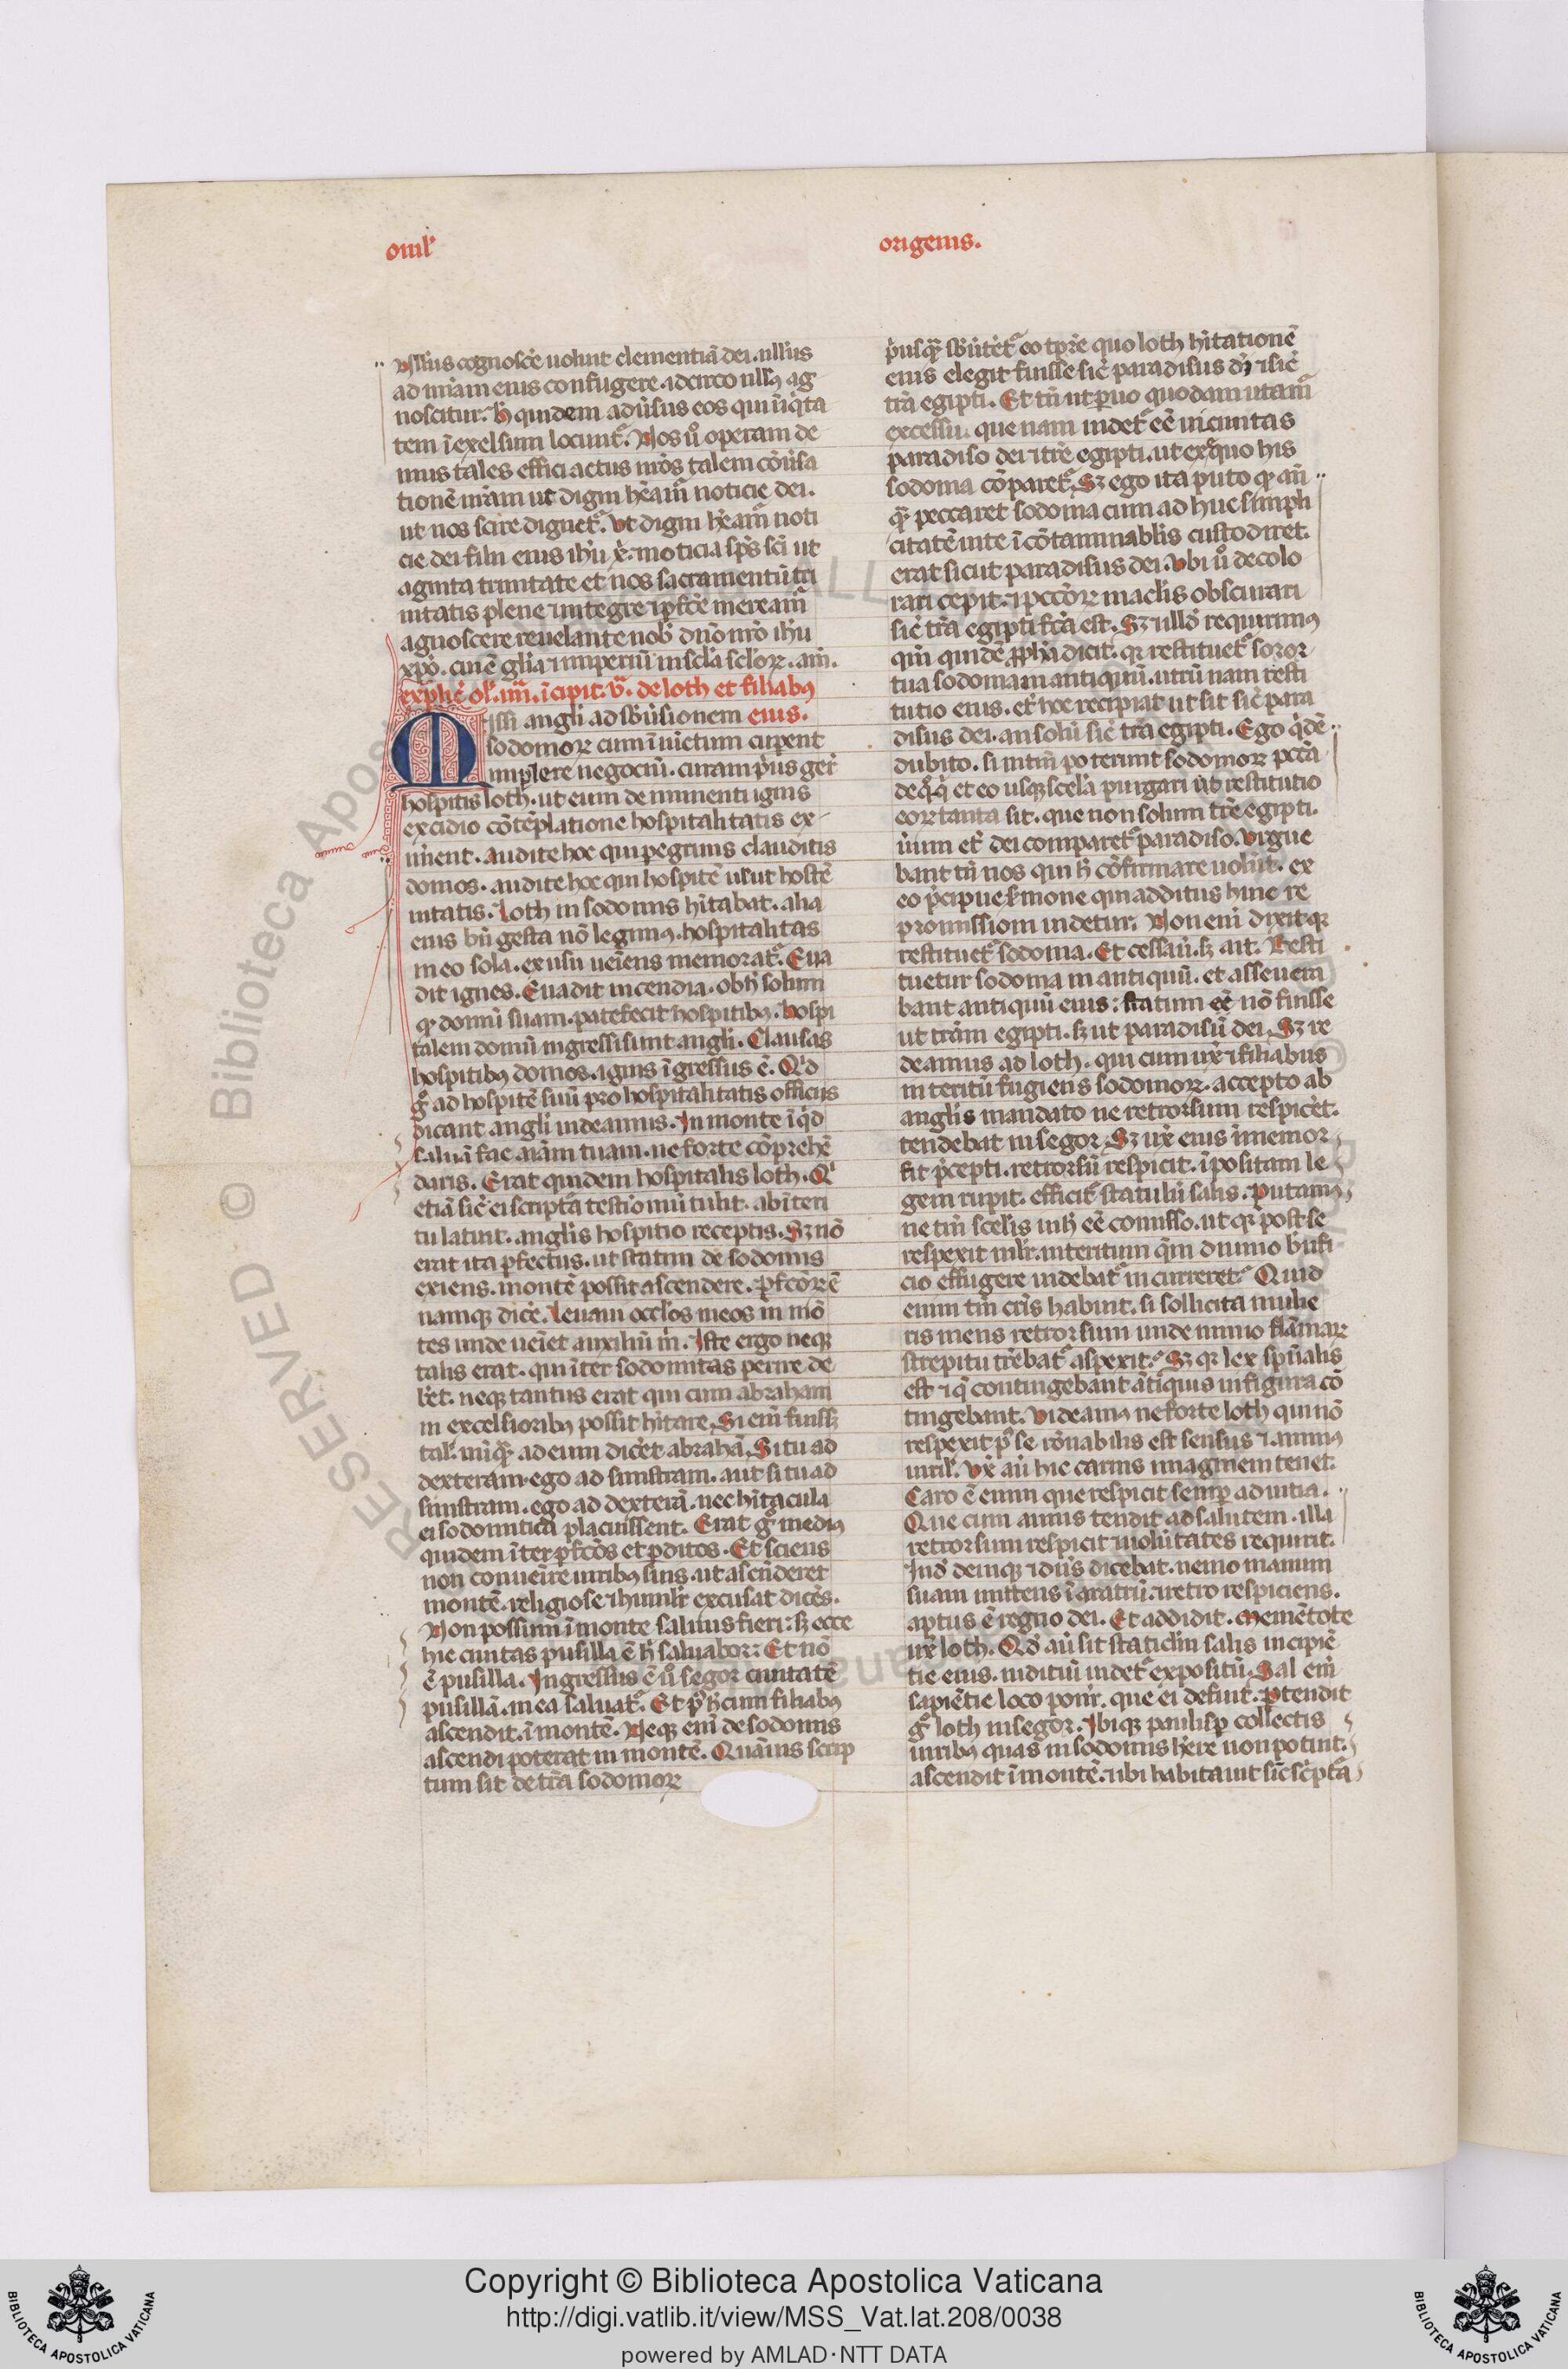 omĺ
origenis.
ullius cognosce᷒ uoluit clementiā dei. ullius
ad mīam eius confugere. idcirco nullꝰ ag
noscitur. h̄ quidem aduīsus eos qui iīq̇ta
tem ī exelsum locunt᷑. Nos ů operam de
mus tales effici actus nr̄os talem cōuīsa
tionē nr̄am ut digni hēam᷑ noticie dei.
ut nos scire dignet᷑. Ut digni hēam᷑ noti
cie dei filii eius ihū x̄. ⁊ noticia sp̄s sci ut
agnita trinitate et nos sacramentū tri
nitatis plene ⁊ integre ⁊ pfcē meream᷑
agnoscere reuelante nob̄ dn̄o nr̄o ihū
xp̄o. cui ē glīa ⁊ imperiū in scl̄a scl̄oꝝ. am̄.
explic̄ ol̄. iiii. īcipit. v. de loth et filiabꝰ
eius.
Missi angl̄i ad sb̄uīsionem
sodomoꝝ cum īnictum cuperent
implere negociū. curam pͥus ger̄
hospitis loth. ut eum de iminenti ignis
excidio cōtēplatione hospitalitatis ex-
im̄ent. audite hoc qui pegrinis clauditis
domos. audite hoc qui hospitē ul̄ ut hostē
uitatis. Loth in sodomis hītabat. alia
eius bn̄ gesta nō legimꝰ. hospitalitas
in eo sola. ex usu ueīens memorat᷑. Eua
dit ignes. Euadit incendia. ob h̄ solum
qꝫ domū suam. patefecit hospitibꝰ. hospi
talem domū ingressi sunt angl̄i. Clausas
hospitibꝰ domos. ignis īgressus ē. Qͥd
g̊ ad hospitē suū pro hospitalitatis officiis
dicant angl̄i uideamus. In monte īq̇d
saluā fac aīam tuam. ne forte cōprehē
daris. Erat quidem hospitalis loth. Qͥ
etiā sic̄ ei scriptᷓa testīoniū tulit. ab īteri
tu latuit. anglis hospitio receptis. Sꝫ nō
erat ita pfectus. ut statim de sodomis
exiens. montē possit ascendere. pfcōꝝ ē
namqꝫ dice᷒. Leuaui occl̄os meos in mō
tes unde ueīet auxiliū m̄. Iste ergo neqꝫ
talis erat. qui īter sodomitas perire de
b̄et. neqꝫ tantus erat qui cum abraham
in excelsioribꝰ possit hītare. Si enī fuissꝫ
tal̄. nūqᷓ ad eum dic̄et abrahā. Si tu ad
dexteram. ego ad sinistram. aut si tu ad
sinistram. ego ad dexterā. nec hītacula
ei sodomitica placuissent. Erat g̊ mediꝰ
quidem īter pfcōs et pditos. Et sciens
non conueīre uiribꝰ suis. ut ascēderet
montē. religiose ⁊ humil̄r excusat dicēs.
Non possum ī monte saluus fieri: sꝫ ecce
hic ciuitas pusilla ē h̄ saluabor: Et nō
ē pusilla. Ingressus ē ů segor ciuitatē
pusillā. in ea saluat᷑. Et pꝰ h̄ cum filiabꝰ
ascendit. ī montē. Neqꝫ enī de sodomis
ascendi poterat in montē. Quāuis scrip
tum sit de trā sodomoꝝ
pͥusqᷓ sb̄uītet᷑ eo tpr̄e quo loth hītationē
eius elegit fuisse sic̄ paradisus dī ⁊ sic̄
trā egipti. Et tn̄ ut puo quodam utam᷑
excessu. que nam uidet᷑ eē uicinitas
paradiso dei ⁊ tr̄e egipti. ut ex quo his
sodoma cōparet᷑. Sꝫ ego ita puto qꝫ an̄
qᷓ peccaret sodoma cum ad huc simpli
citatē uite īcōtaminablis custodiret.
erat sicut paradisus dei. Ubi ů decolo
rari cepit. ⁊ pccōꝝ maclis obscurari
sic̄ trā egipti fcā est. Sꝫ ⁊ illd̄ requirimꝰ
qm̄ quidē pph̄a dicit. qꝫ restituet᷑ soror
tua sodoma in antiquū. utrū nam resti
tutio eius. et̄ hoc recipiat ut sit sic̄ para
disus dei. an solū sic̄ trā egipti. Ego q̇dē
dubito. si intm̄ poterunt sodomoꝝ pctā
decoq̇ et eo usqꝫ scel̄a purgari ut restitutio
eoꝝ tanta sit. que non solum tr̄e egipti.
uūm et̄ dei comparet᷑ paradiso. Urgue
bant tn̄ nos qui h̄ cōfirmare uolūt. ex
eo pͥcipue s̄mone qui additus huic re
promissioni uidetur. Non enī dixit qꝫ
restituet᷑ sodoma. Et cessaū. sꝫ ait. Resti
tuetur sodoma in antiquū. et asseuera
bant antiquū eius: statum eē nō fuisse
ut trām egipti. sꝫ ut paradisū dei. Sꝫ re
deamus ad loth. qui cum ux̄ ⁊ filiabus
interitū fugiens sodomoꝝ. accepto ab
anglis mandato ne retrorsum respicēt.
tendebat in segor. Sꝫ ux̄ eius īmemor
fit pͥcepti. retrorsū respicit. īpositam le
gem rupit. efficit᷑ statulū salis. Putamꝰ
ne tm̄ scelis in h̄ eē comisso. ut qꝫ post se
respexit mul̄r. interitum qm̄ diuino b̄nfi
cio effugere uidebat᷑ incurreret. Quid
enim tm̄ cris habuit. si sollicita mulie
ris mens retrorsum unde nimio flāmaꝝ
strepitu t̄rebat᷑ aspexit. Sꝫ qꝫ lex spūalis
est ⁊ q̄ contingebant ātiquis in figura cō
tingebant. Uideamꝰ ne forte loth qui nō
respexit pꝰ se. rōnabilis est sensus ⁊ animꝰ
uiril̄. Ux̄ aū hic carnis imaginem tenet.
Caro ē enim que respicit semp ad uitia.
Que cum animus tendit ad salutem. illa
retrorsum respicit ⁊ uolūtates requirit.
Ind̄ deniqꝫ ⁊ dn̄s dicebat. nemo manum
suam mittens ī aratrū. ⁊ retro respiciens.
aptus ē regno dei. Et addidit. Memētote
ux̄ loth. Qd̄ aū sit static̄lm salis īncipiē
tie eius. indiciū uidet᷑ expositū. Sal enī
sapiētie loco ponit᷑. que ei defuit. Ptendit
g̊ loth in segor. Ibiqꝫ paulisp collectis
uiribꝰ quas in sodomis h̄ere non potuit.
ascendit ī montē. ⁊ ibi habitauit sic̄ scͥptᷓa
Copyright © Biblioteca Apostolica Vaticana
http://digi.vatlib.it/view/MSS_Vat.lat.208/0038
powered by AMLAD·NTT DATA
BIBLIOTECA APOSTOLICA VATICANA
BIBLIOTECA APOSTOLICA VATICANA